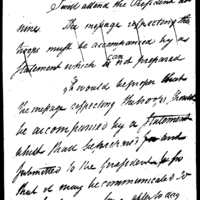 I will attend the President at
nine. The message respecting the
troops must be accompanied by a
statement which is can prepared
It would be proper that
the message respecting the troops, should
be accompanied by a statement
which shall be previously
submitted to the President for
that it may be communicated to